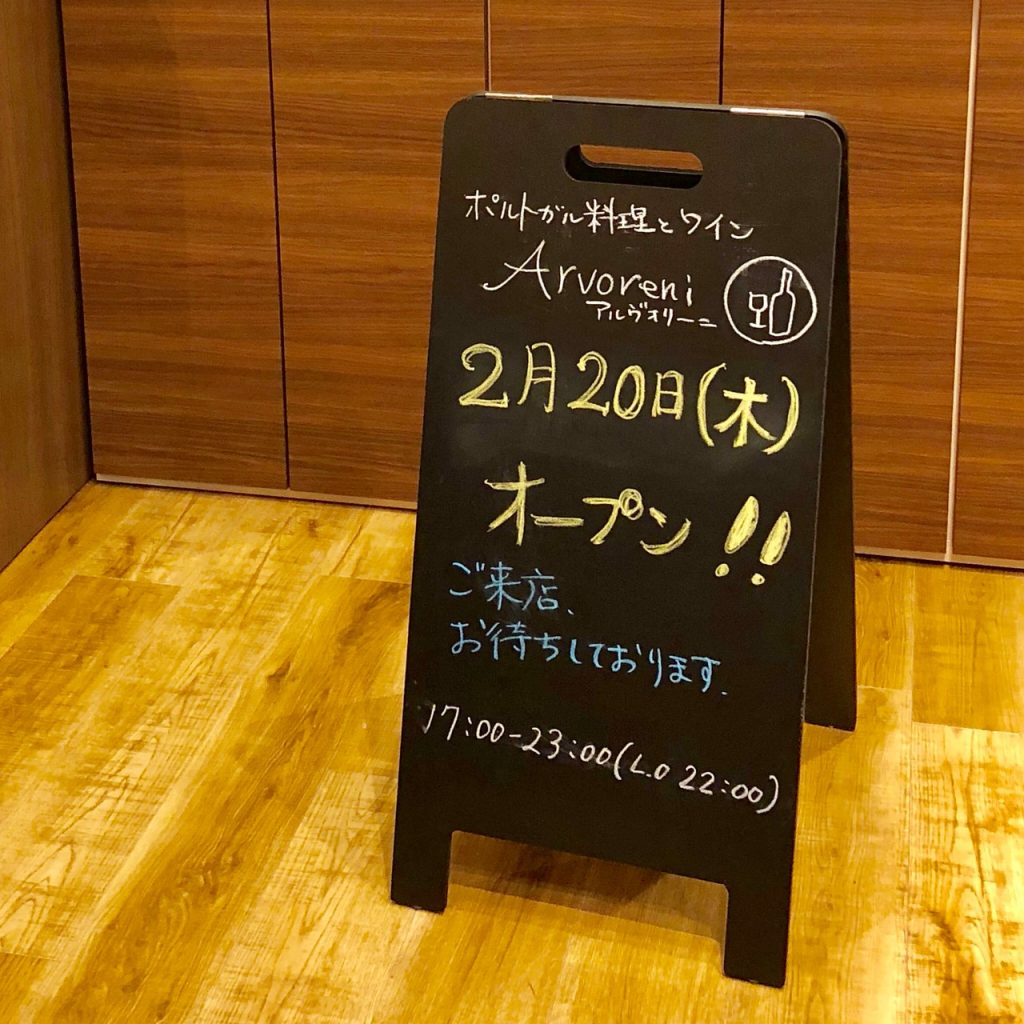 ポルトガル料理とワイン
Arvoreni
アルヴォリーニ
2月20日(木)
オープン!!
ご来店、
お待ちしております.
17:00-23:00(L.o 22:00)